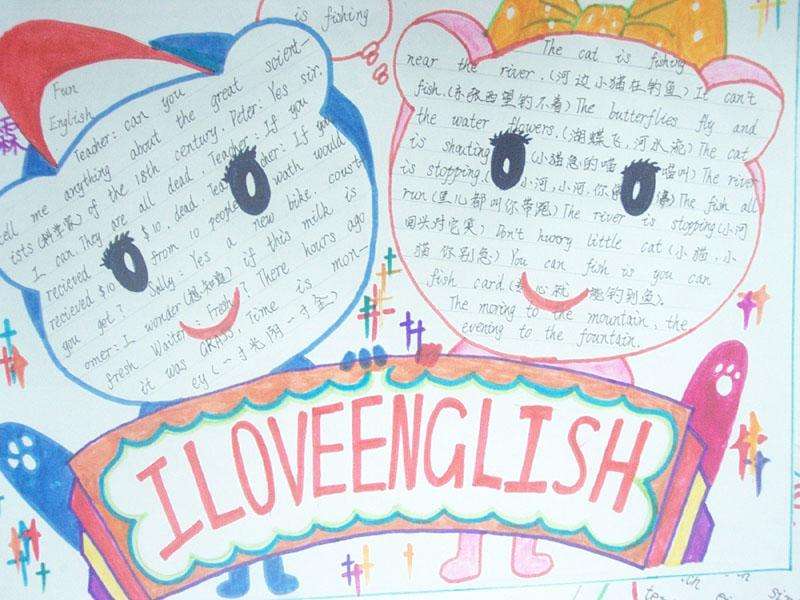 is fishing
Fun
English
Teacher: can you
tell me anything about the great scient-
ists (科学家) of the 18th century. Peter: Yes sir.
I can. They are all dead. Teacher: If you
recieved $10. dead. Teacher: If you
recieved $10 from 10 people wath would
you got? Sally: Yes a new bike coust
omer: I wonder (想知道) if this milk is
fresh Waiter: Fresh? There hours ago
it was GRASS, Time is mon-
ey (一寸光阴一寸金)
The cat is fishing
near the river. (河边小猫在钓鱼) It can't
fish. (东张西望钓不着) The butterflies fly and
the water flowers. (湖蝶飞,河水流) The cat
is shouting (小猫急的喵 喵叫) The river
is stopping (小河,小河,你 ) The fish all
run (鱼儿都叫你带跑) The river is stopping (小河
回头对它笑) Don't hurry little cat (小猫,小
猫 你别急) You can fish is you can
fish card ( 心就 能钓到鱼).
The moring to the mountain, the
evening to the fountain.
霖
ILOVEENGLISH